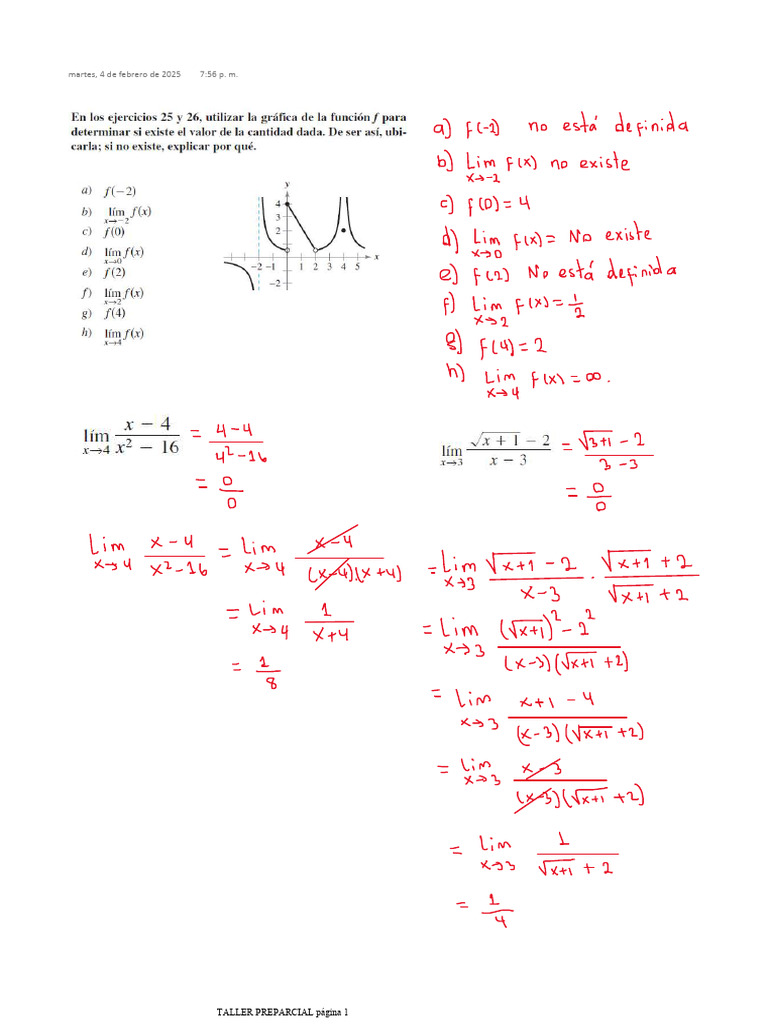 martes, 4 de febrero de 2025 7:56 p. m.
En los ejercicios 25 y 26, utilizar la gráfica de la función f para
determinar si existe el valor de la cantidad dada. De ser así, ubi-
carla; si no existe, explicar por qué.
a) f(−2)
b) lím x→−2 f(x)
c) f(0)
d) lím x→0 f(x)
e) f(2)
f) lím x→2 f(x)
g) f(4)
h) lím x→4 f(x)
y
4
3
2
−2 −1 1 2 3 4 5 x
−2
a) f(-2) no está definida
b) Lim x→-2 f(x) no existe
c) f(0) = 4
d) Lim x→0 f(x) = No existe
e) f(2) No está definida
f) Lim x→2 f(x) = 1/2
g) f(4) = 2
h) Lim x→4 f(x) = ∞.
lím x→4 (x − 4)/(x² − 16) = (4-4)/(4²-16)
= 0/0
Lim x→4 (x-4)/(x²-16) = Lim x→4 (x-4)/((x-4)(x+4))
= Lim x→4 1/(x+4)
= 1/8
lím x→3 (√(x + 1) − 2)/(x − 3) = (√(3+1) - 2)/(3-3)
= 0/0
= Lim x→3 (√(x+1) - 2)/(x-3) · (√(x+1) + 2)/(√(x+1) + 2)
= Lim x→3 ((√(x+1))² - 2²)/((x-3)(√(x+1) + 2))
= Lim x→3 (x+1 - 4)/((x-3)(√(x+1) + 2))
= Lim x→3 (x-3)/((x-3)(√(x+1) + 2))
= Lim x→3 1/(√(x+1) + 2)
= 1/4
TALLER PREPARCIAL página 1